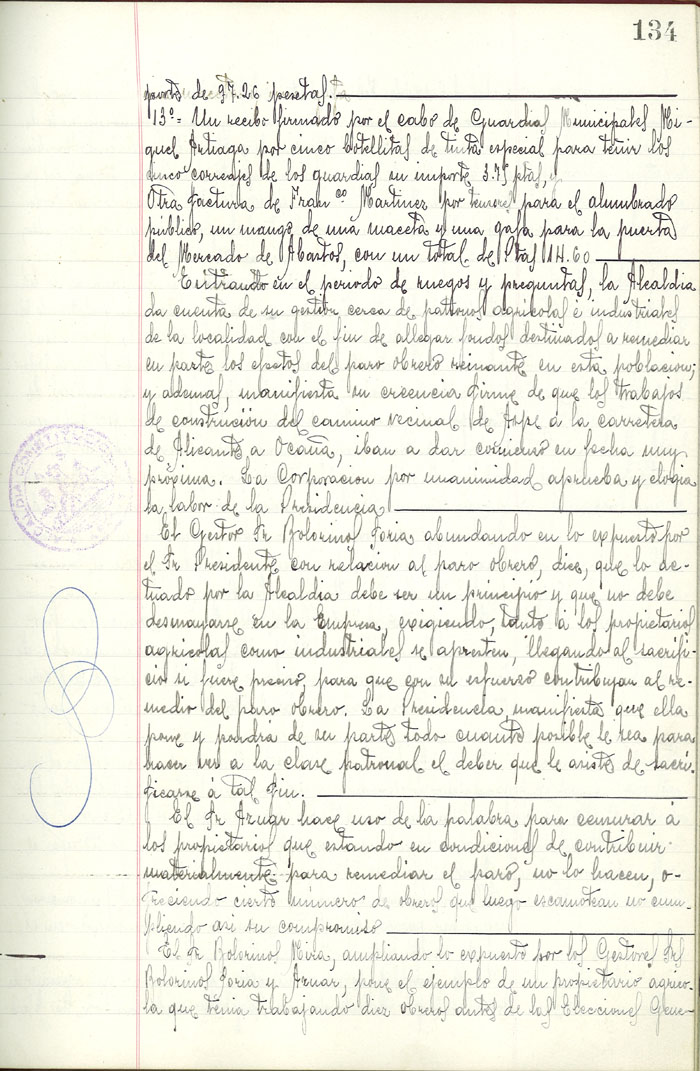 134
porte de 97.26 pesetas.
13º = Un recibo firmado por el cabo de Guardias Municipales Mi-
guel Artiaga por cinco botellitas de tinta especial para teñir los
cinco correajes de los guardias su importe 3.75 ptas, y
Otra factura de Franco Martinez por para el alumbrado
público, un mango de una maceta y una gafa para la puerta
del Mercado de Abastos, con un total de Ptas 14.60
Entrando en el periodo de ruegos y preguntas, la Alcaldia
da cuenta de su gestión cerca de patronos agricolas e industriales
de la localidad con el fin de allegar fondos destinados a remediar
en parte los efectos del paro obrero reinante en esta poblacion;
y ademas, manifiesta su creencia firme de que los trabajos
de construción del camino vecinal de Aspe á la carretera
de Alicante a Ocaña, iban a dar comienzo en fecha muy
próxima. La Corporacion por unanimidad aprueba y elogia
la labor de la Presidencia
El Gestor Sr Bolorinos Soria abundando en lo expuesto por
el Sr Presidente con relacion al paro obrero, dice, que lo ac-
tuado por la Alcaldia debe ser un principio y que no debe
desmayarse en la Empresa, exigiendo, tanto á los propietarios
agricolas como industriales se apresten, llegando al sacrifi-
cio si fuere preciso, para que con su esfuerzo contribuyan al re-
medio del paro obrero. La Presidencia manifiesta que ella
pone y pondrá de su parte todo cuanto posible le sea para
hacer ver a la clase patronal el deber que le asiste de sacri-
ficarse á tal fin.
El Sr Aznar hace uso de la palabra para censurar á
los propietarios que estando en condiciones de contribuir
materialmente para remediar el paro, no lo hacen, o-
freciendo cierto número de obreros que luego escamotean no cum-
pliendo asi su compromiso
El Sr Bolorinos Mira, ampliando lo expuesto por los Gestores Srs
Bolorinos Soria y Aznar, pone el ejemplo de un propietario agrico-
la que tenia trabajando diez obreros antes de las Elecciones Gene-